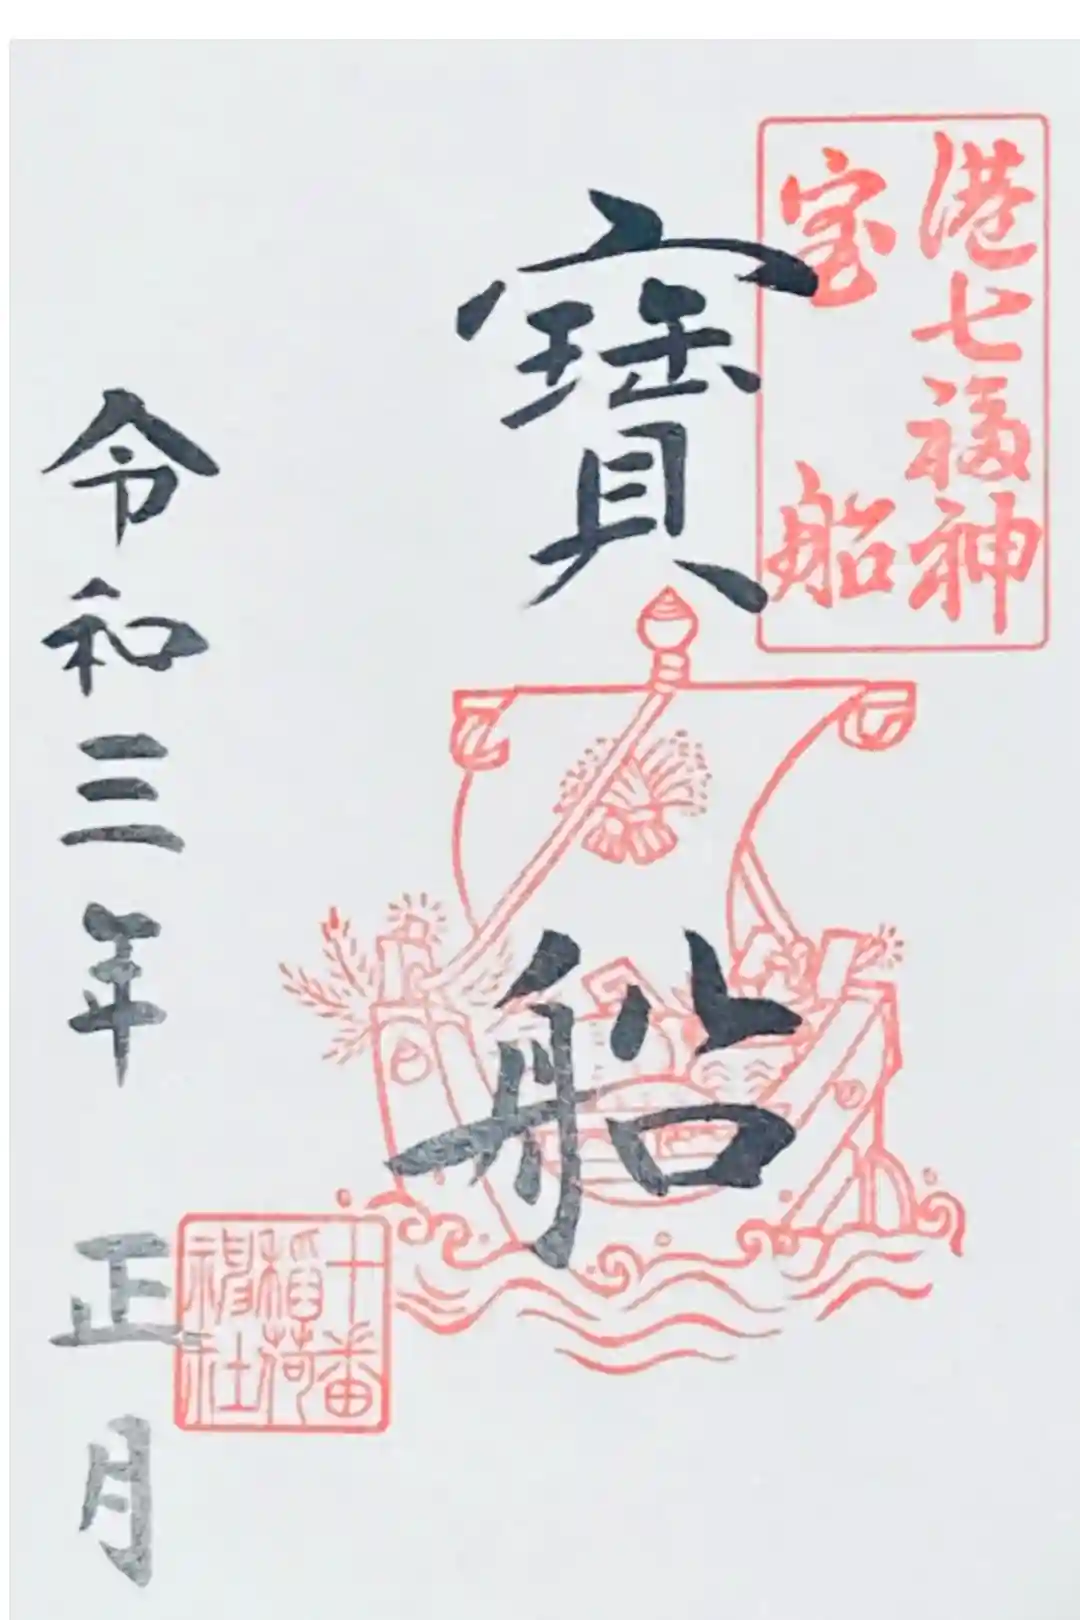 港七福神
宝船
寶船
十番
稲荷
神社
令和三年 正月